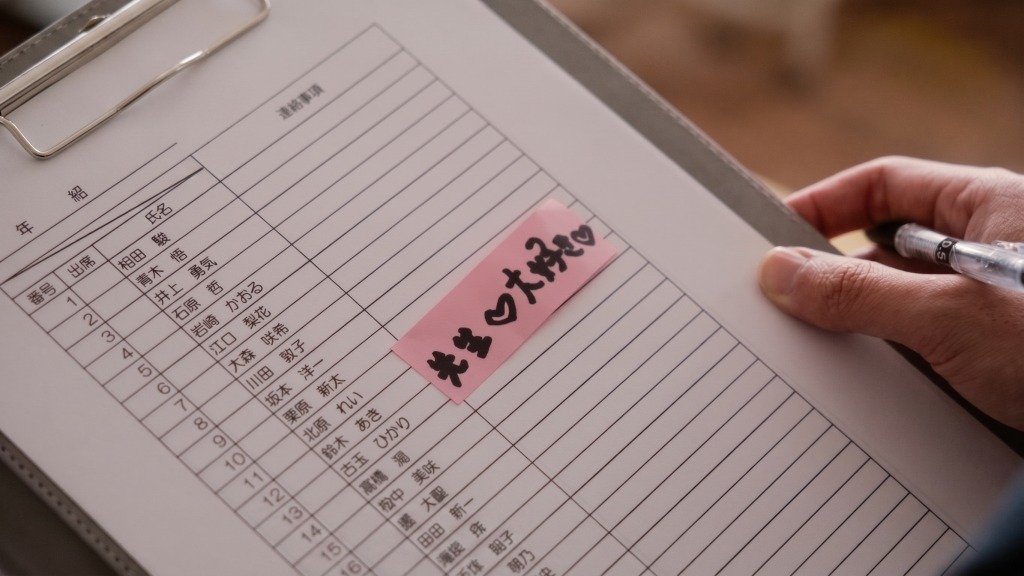 年 紹
連絡事項
番号 出席 氏名
1 相田 駿
2 青木 悟
3 井上 勇気
4 石原 哲
5 岩崎 かおる
6 江口 梨花
7 大森 咲希
8 川田 敦子
9 坂本 洋一
10 栗原 新太
11 北原 れい
12 鈴木 あき
13 古玉 ひかり
14 高橋
15 中 美咲
16 大聖
田田 新一
先生♡大好き♡